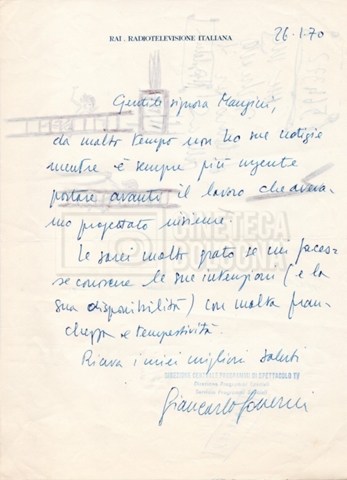 RAI . RADIOTELEVISIONE ITALIANA
26.1.70
Gentile signora Mangini,
da molto tempo non ho sue notizie
mentre è sempre più urgente
portare avanti il lavoro che aveva-
mo progettato insieme.
Le sarei molto grato se mi faces-
se conoscere le sue intenzioni (e la
sua disponibilità) con molta fran-
chezza e tempestività.
Riceva i miei migliori saluti
DIREZIONE CENTRALE PROGRAMMI DI SPETTACOLO TV
Direzione Programmi Speciali
Servizio Programmi Speciali
Giancarlo
CINETECA
BOLOGNA